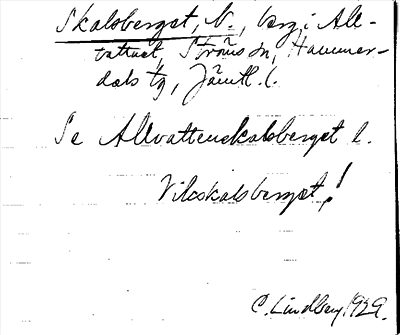 Skalsberget, N., berg i All-
vattnet, Ströms sn, Hammer-
dals tg, Jämtl. l.
Se Allvattenskalsberget l.
Vikskalsberget!
C. Lindberg 1929.